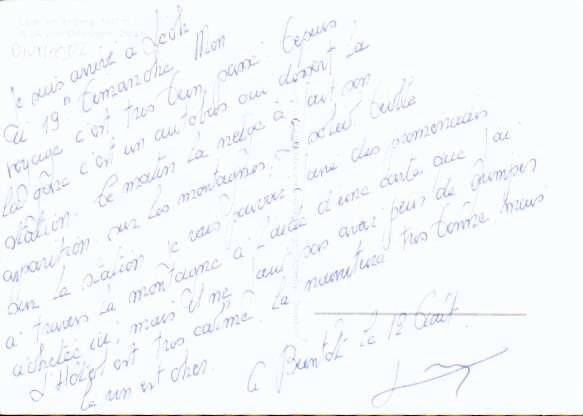 Je suis arrivé à Lech
19h Dimanche Mon
voyage c'est très bien passé. Depuis
la gare c'est un autobus qui dessert la
station. Ce matin la neige à fait son
apparition sur les montagnes, le soleil brille
sur la station je vais pouvoir faire des promenades
à travers la montagne à l'aide d'une carte que j'ai
achetée ici, mais il ne faut pas avoir peur de grimper
L'Hôtel est très calme. la nourriture très bonne mais
le vin est cher.
à Bientôt le 12 Août.